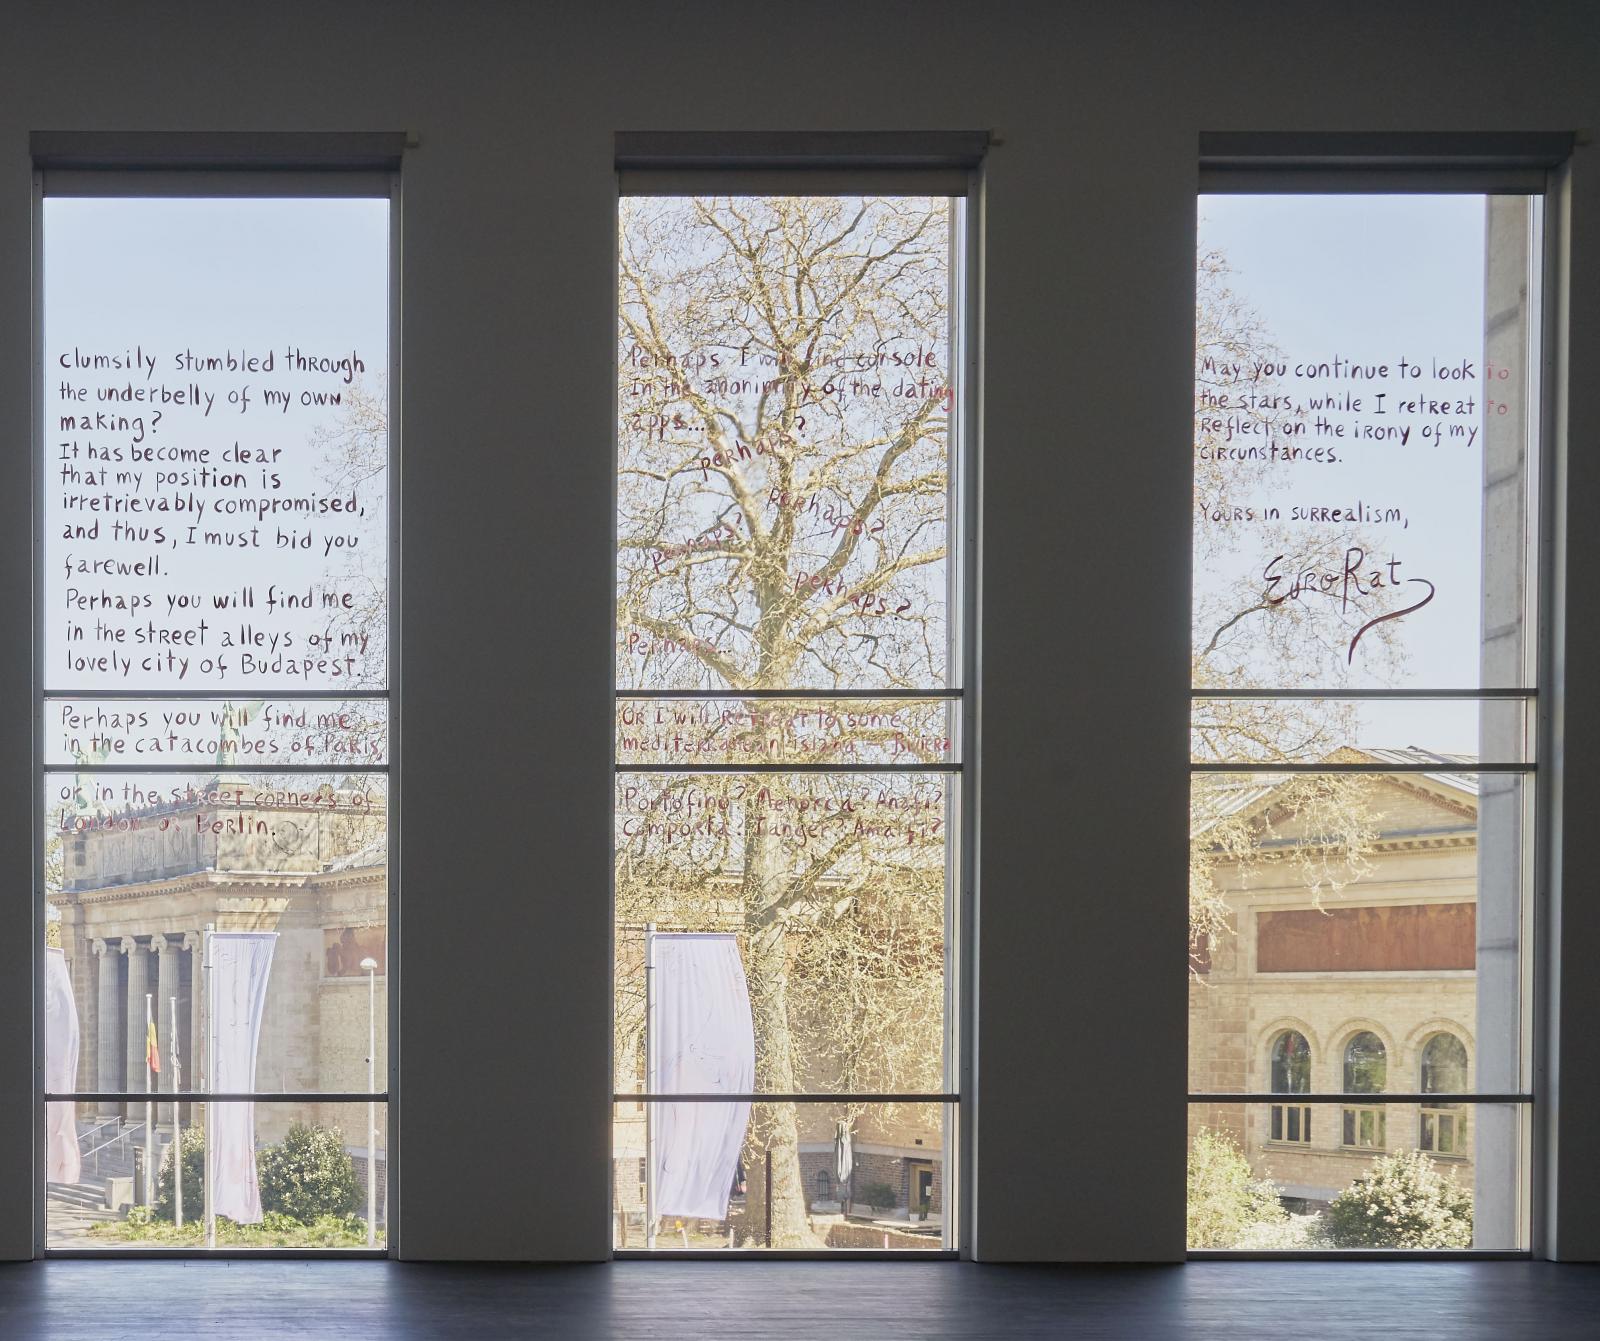 clumsily stumbled through
the underbelly of my own
making?
It has become clear
that my position is
irretrievably compromised,
and thus, I must bid you
farewell.
Perhaps you will find me
in the street alleys of my
lovely city of Budapest.
Perhaps you will find me
in the catacombes of Paris,
or in the street corners of
London or Berlin.
Perhaps I will find console
In the anonimity of the dating
apps...
perhaps?
perhaps?
perhaps?
perhaps?
Perhaps...
Or I will Retreat to some
mediterranean island –
Portofino? Menorca? Anafi?
Comporta? Tanger? Amalfi?
May you continue to look to
the stars, while I retreat to
Reflect on the irony of my
circunstances.
Yours in surrealism,
EuroRat